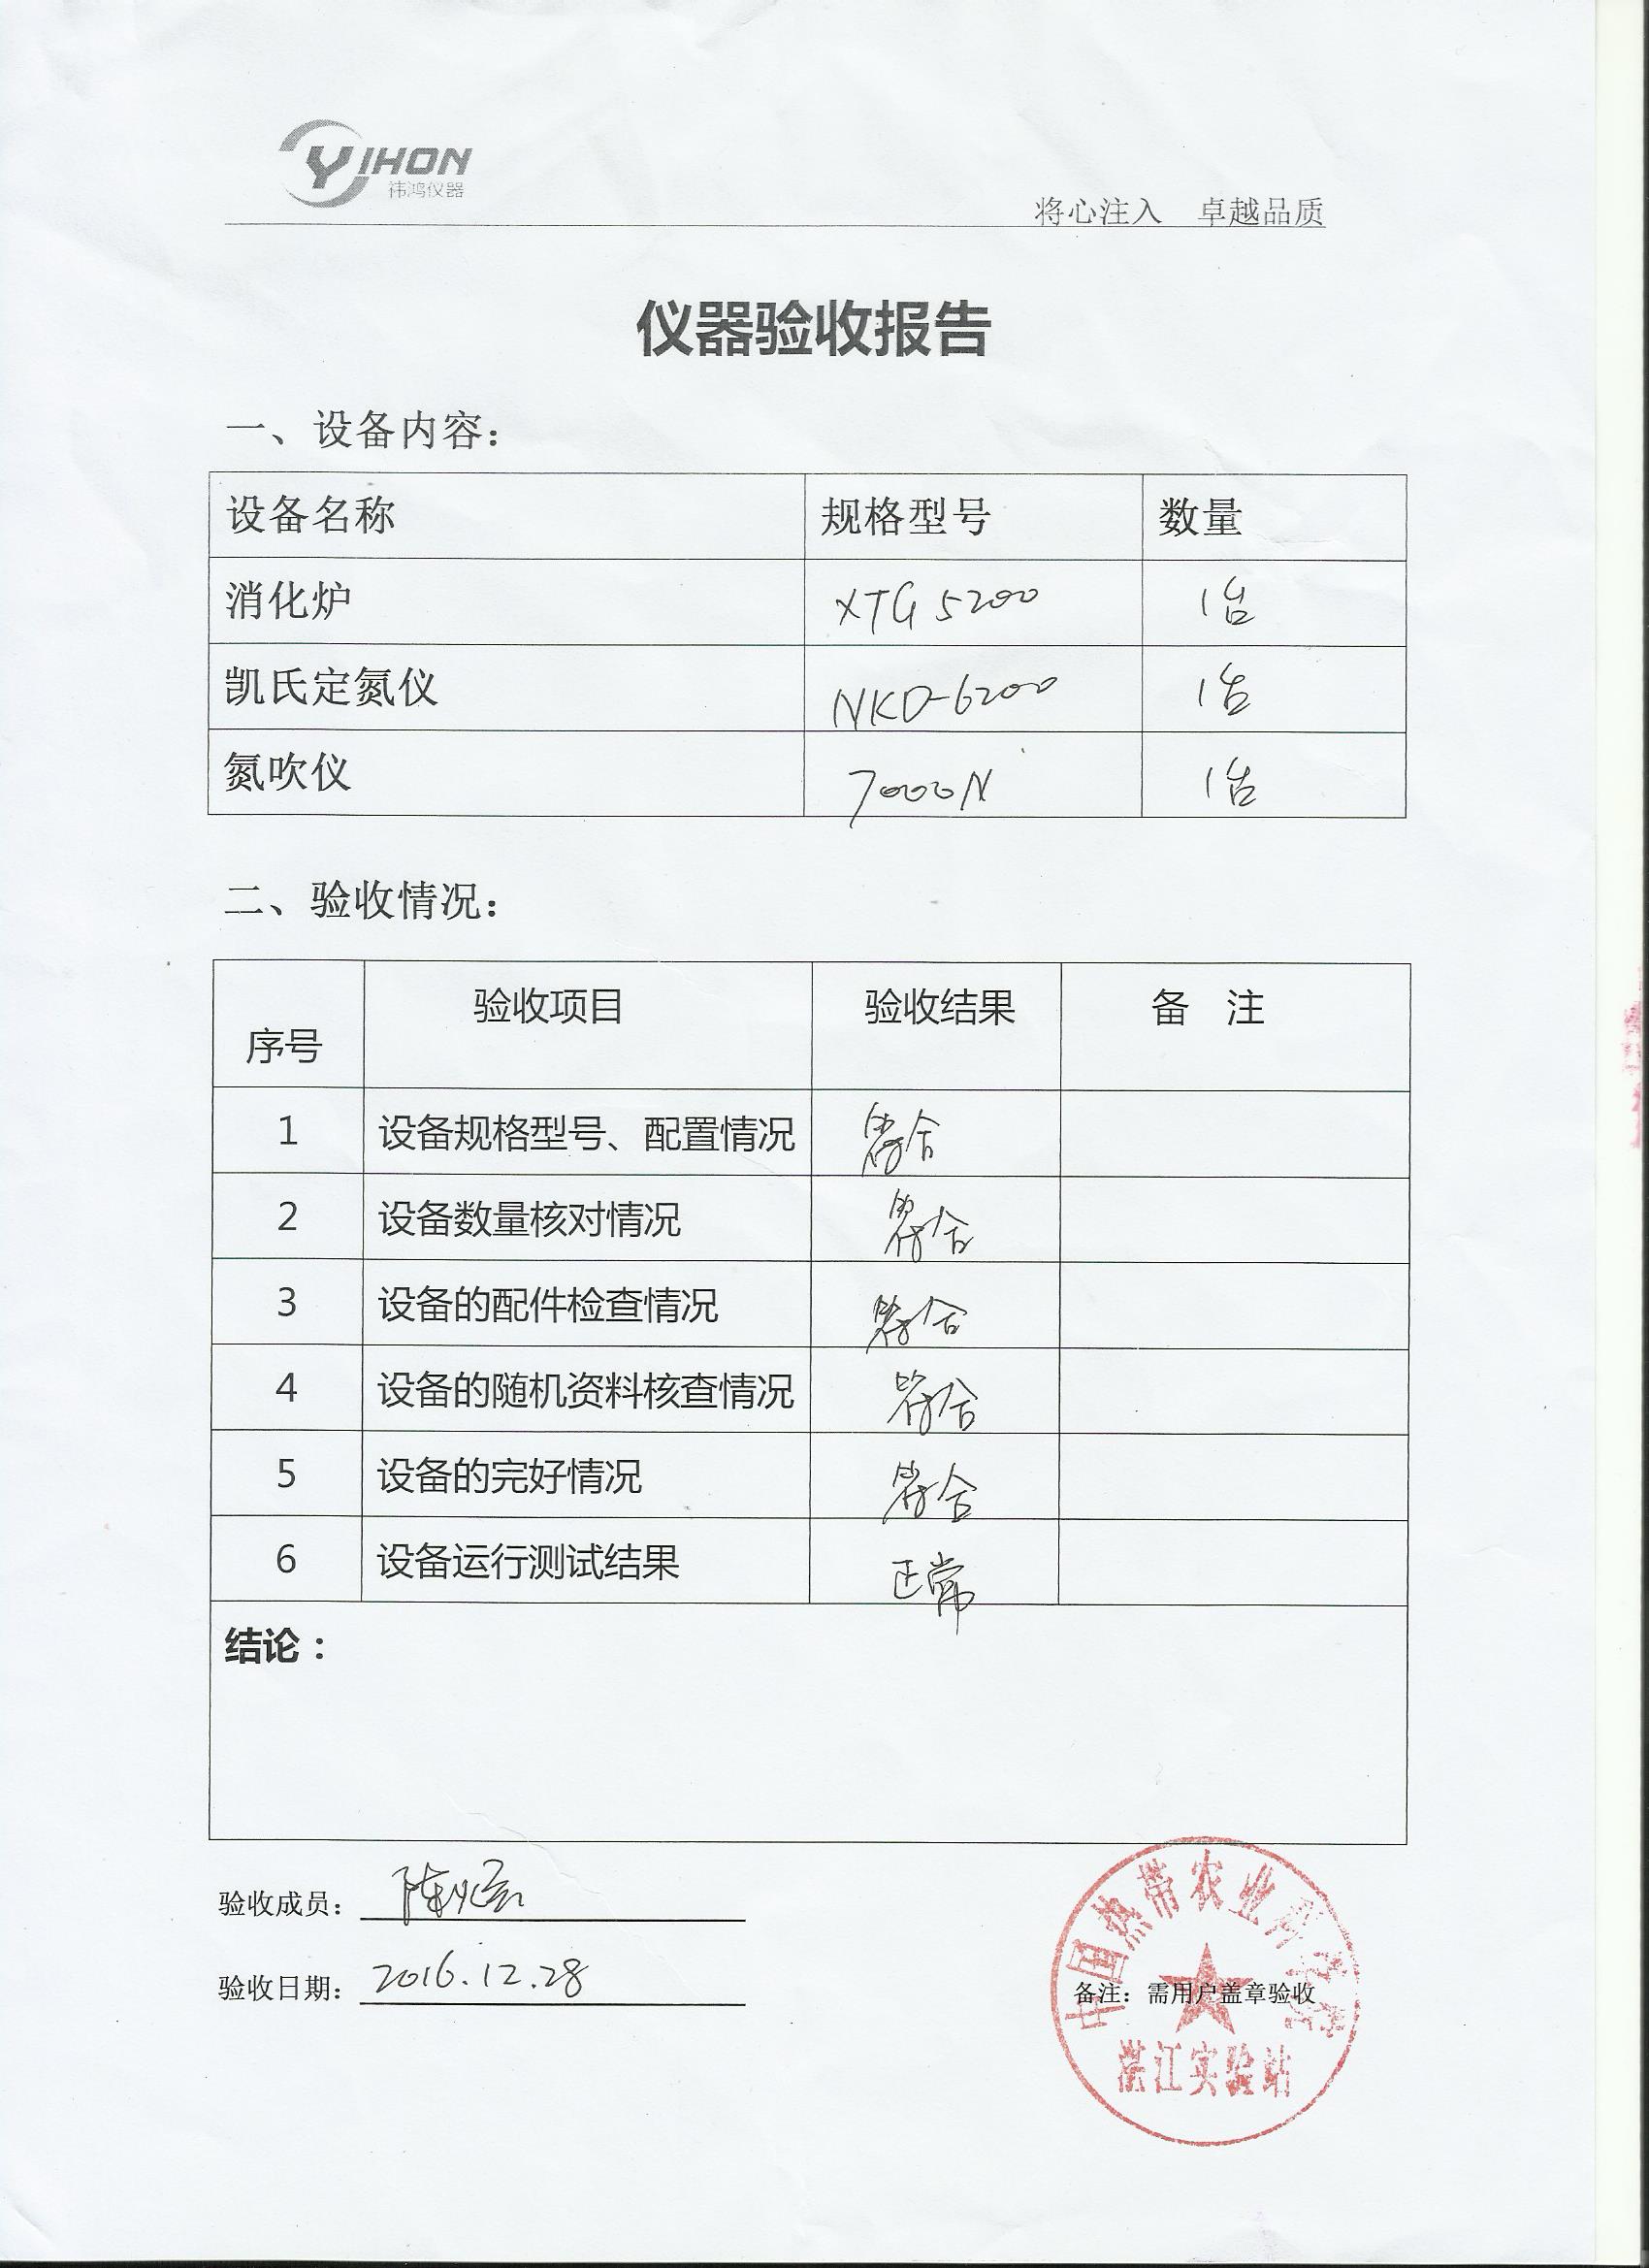 YIHON
祎鸿仪器
将心注入 卓越品质
仪器验收报告
一、设备内容：
设备名称 规格型号 数量
消化炉 XTG 5200 1台
凯氏定氮仪 NKD-6200 1台
氮吹仪 7000N 1台
二、验收情况：
序号 验收项目 验收结果 备 注
1 设备规格型号、配置情况 符合
2 设备数量核对情况 符合
3 设备的配件检查情况 符合
4 设备的随机资料核查情况 符合
5 设备的完好情况 符合
6 设备运行测试结果 正常
结论：
验收成员： 陈
验收日期： 2016.12.28
备注：需用户盖章验收
中国热带农业科学院
湛江实验站